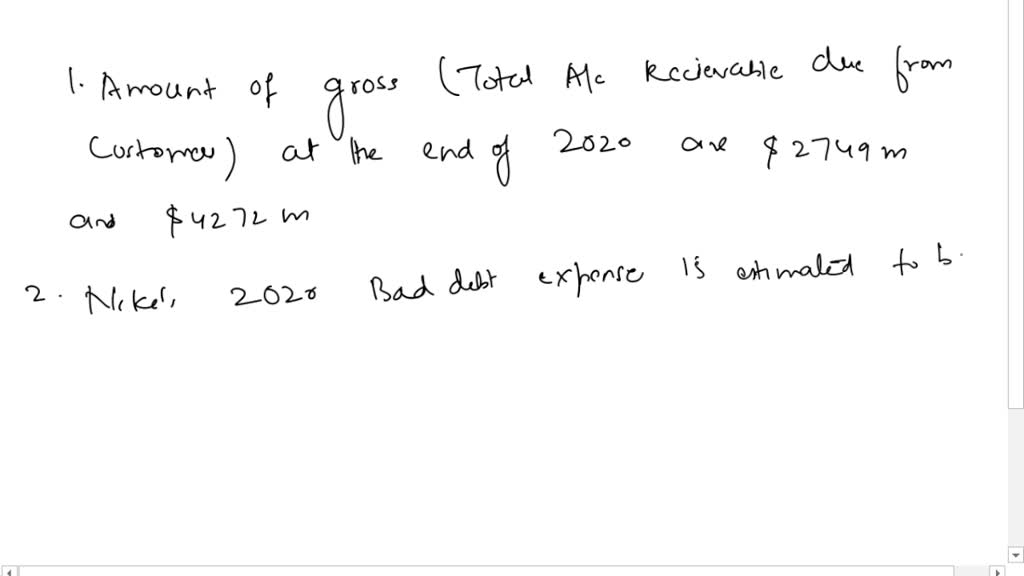 1. Amount of gross (Total A/c Recievable due from
Customer) at the end of 2020 are $2749 m
and $4272 m
2. Nike's 2020 Bad debt expense is estimated to b.